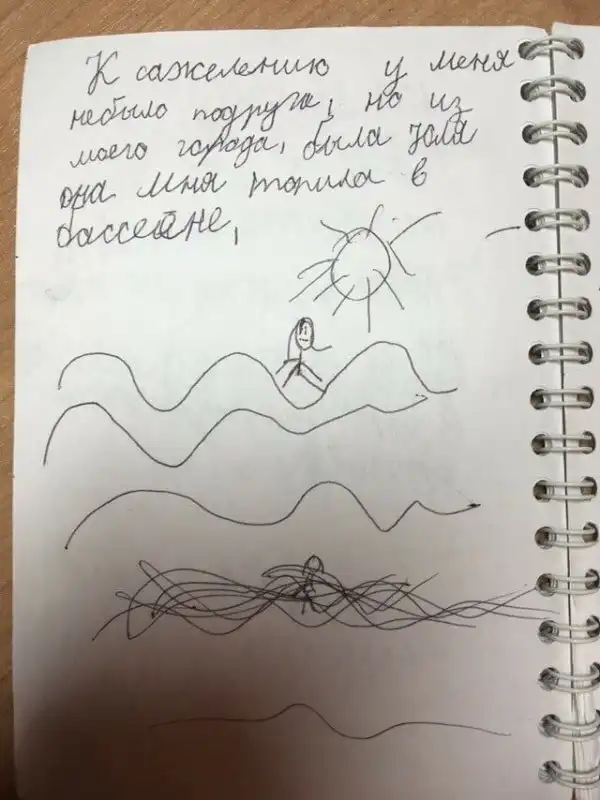 К сажелению у меня
небыло подруга, но из
моего города, была Юля
она мня топила в
бассейне,